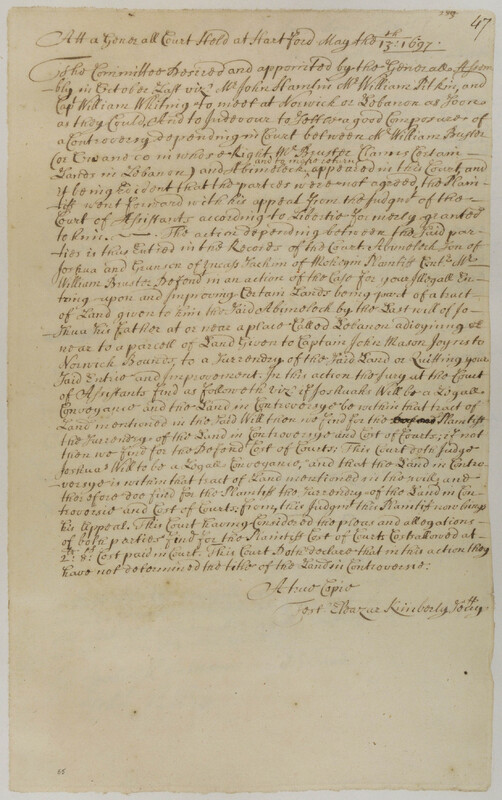 47
Att a Generall Court Held at Hartford May the 13th: 1697:
The Committee Desired and appointed by the Generall Assem
bly in October Last viz: Mr John Hamlin Mr William Pitkin, and
Cap William Whiting to meet at Norwich or Lebanon as soon
as they Could, And to Indevour to Effect a good Composure of
a Controversy depending in Court between Mr William Bruster
(or Owaneco in whose Right Mr Bruster Claims Certain
Lands in Lebanon) and Abimeleck, and to make return appeared in this Court, and
it being Evident that the parties were not agreed, the Plain-
tiff went forward with his appeal from the Judgmt of the
Court of Assistants according to Libertie formerly granted
to him. — The action depending between the said par-
ties is thus Entred in the Records of the Court Abimeleck Son of
Joshua and Grandson of Uncass Sachim of Moheegin Plantiff Contr. Mr
William Bruster Defend in an action of the Case for your Illegall En-
tring upon and Improving Certain Lands being part of a tract
of Land given to him the said Abimeleck by the Last will of Jo-
shua his Father at or near a place Called Lebanon adioyning at
or near to a parcell of Land Given to Captain John Mason Joynes to
Norwich Bounds, to a surrendry of the said Land or Quitting your
said Entrie and Improvement. In this action the Jury at the Court
of Assistants find as followeth viz: if Joshuahs Will be a Legall
Conveyance and the Land in Controversie be within that tract of
Land mentioned in the said Will then we find for the Plantiff
the surrendry of the Land in Controversie and Cost of Courts; if not
then we find for the Defend Cost of Courts: This Court doth Judge
Joshuas Will to be a Legall Conveyance, and that the Land in Contro-
versie is within that tract of Land mentioned in the will, and
therefore doe find for the Plantiff the surrendry of the Land in Con-
troversie and Cost of Courts: from this Judgmt this Plantiff now brings
his Appeal. This Court having Considered the pleas and allegations
of both parties find for the Plantiff Cost of Court: Cost allowed at
Cost paid in Court. This Court Doth Declare that in this action they
have not determined the title of the Land in Controversie:
A true Copie
Test Eleazar Kimberly Secrty